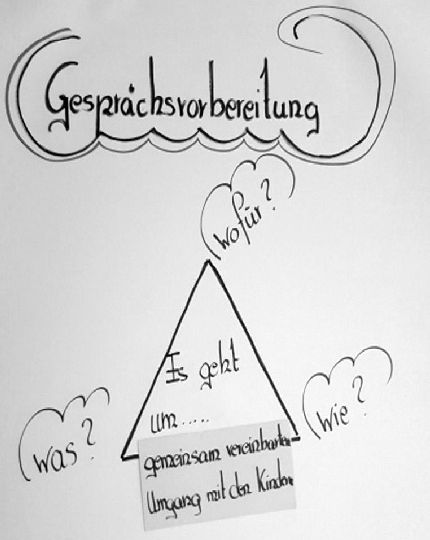 Gesprächsvorbereitung
wofür?
Es geht
um.....
was?
wie?
gemeinsam vereinbarten
Umgang mit den Kindern